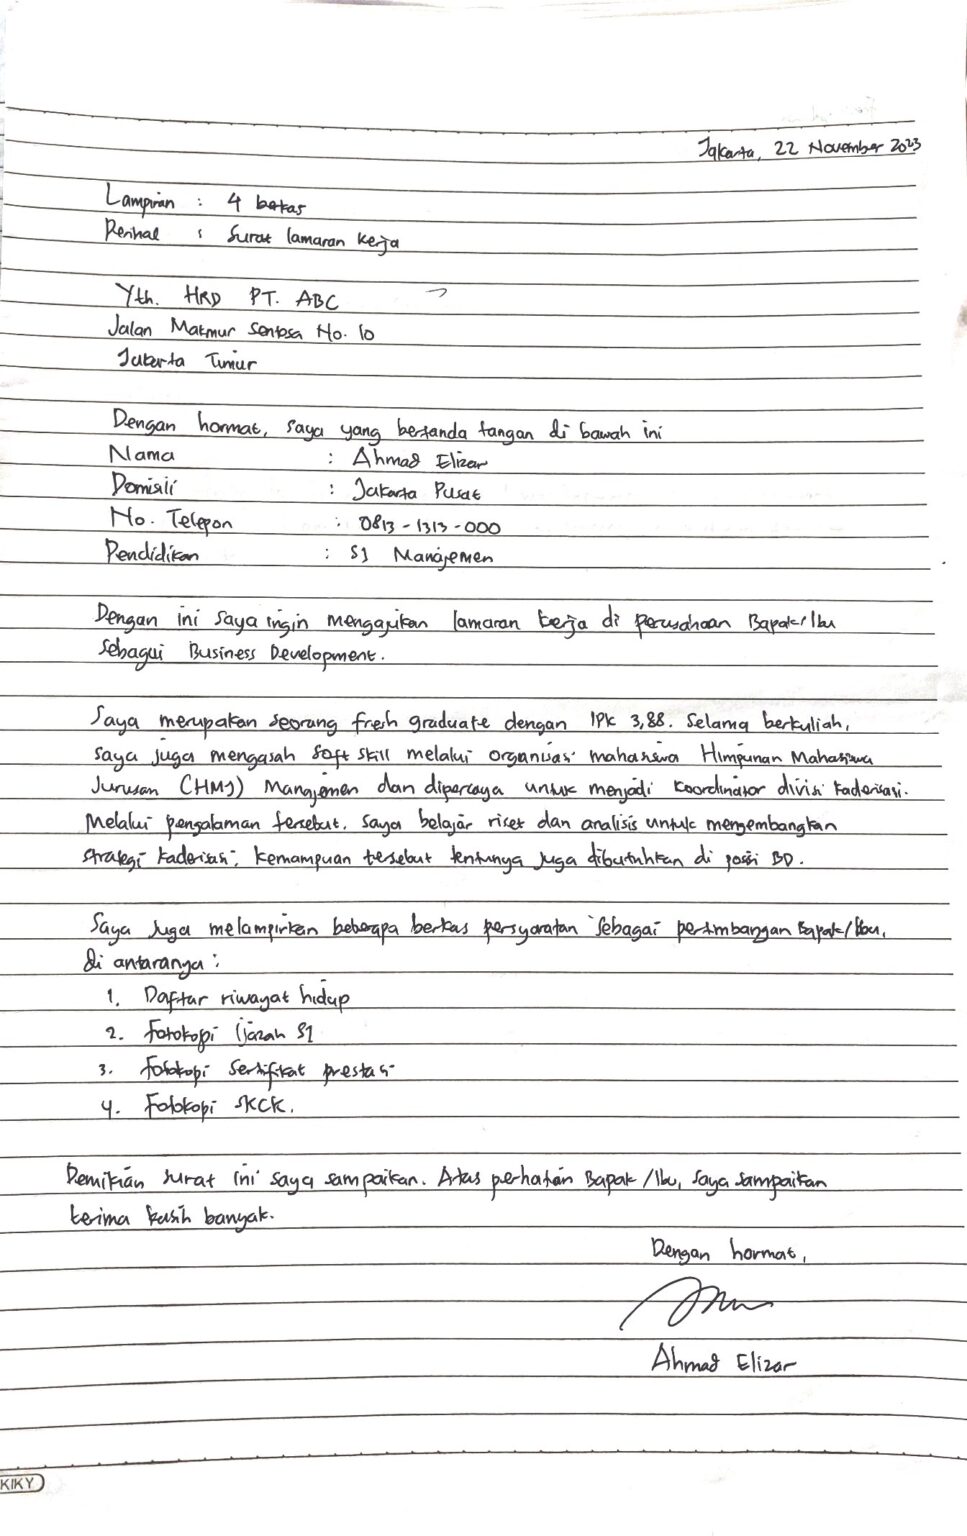 Jakarta, 22 November 2023
Lampiran : 4 berkas
Perihal : Surat lamaran kerja
Yth. HRD PT. ABC
Jalan Makmur Sentosa No. 10
Jakarta Timur
Dengan hormat, saya yang bertanda tangan di bawah ini
Nama : Ahmad Elizar
Domisili : Jakarta Pusat
No. Telepon : 0813-1313-000
Pendidikan : S1 Manajemen
Dengan ini saya ingin mengajukan lamaran kerja di perusahaan Bapak/Ibu
sebagai Business Development.
Saya merupakan seorang fresh graduate dengan IPK 3,88. Selama berkuliah,
saya juga mengasah soft skill melalui organisasi mahasiswa Himpunan Mahasiswa
Jurusan (HMJ) Manajemen dan dipercaya untuk menjadi koordinator divisi kaderisasi.
Melalui pengalaman tersebut, saya belajar riset dan analisis untuk mengembangkan
strategi kaderisasi, kemampuan tersebut tentunya juga dibutuhkan di posisi BD.
Saya juga melampirkan beberapa berkas persyaratan sebagai pertimbangan Bapak/Ibu,
di antaranya :
1. Daftar riwayat hidup
2. Fotokopi ijazah S1
3. Fotokopi sertifikat prestasi
4. Fotokopi SKCK.
Demikian surat ini saya sampaikan. Atas perhatian Bapak/Ibu, saya sampaikan
terima kasih banyak.
Dengan hormat,
Ahmad Elizar
KIKY